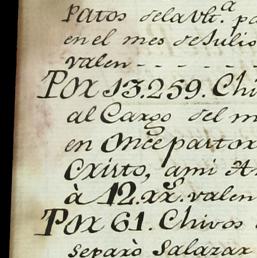 Patos de la Vlt.ª pa
en el mes de Julio
valen - - - -
Por 13.259. Chi
al Cargo del m
en Once partox
Cxixto, ami An
à 12. rx. valen
Por 61. Chivos
separò Salazar